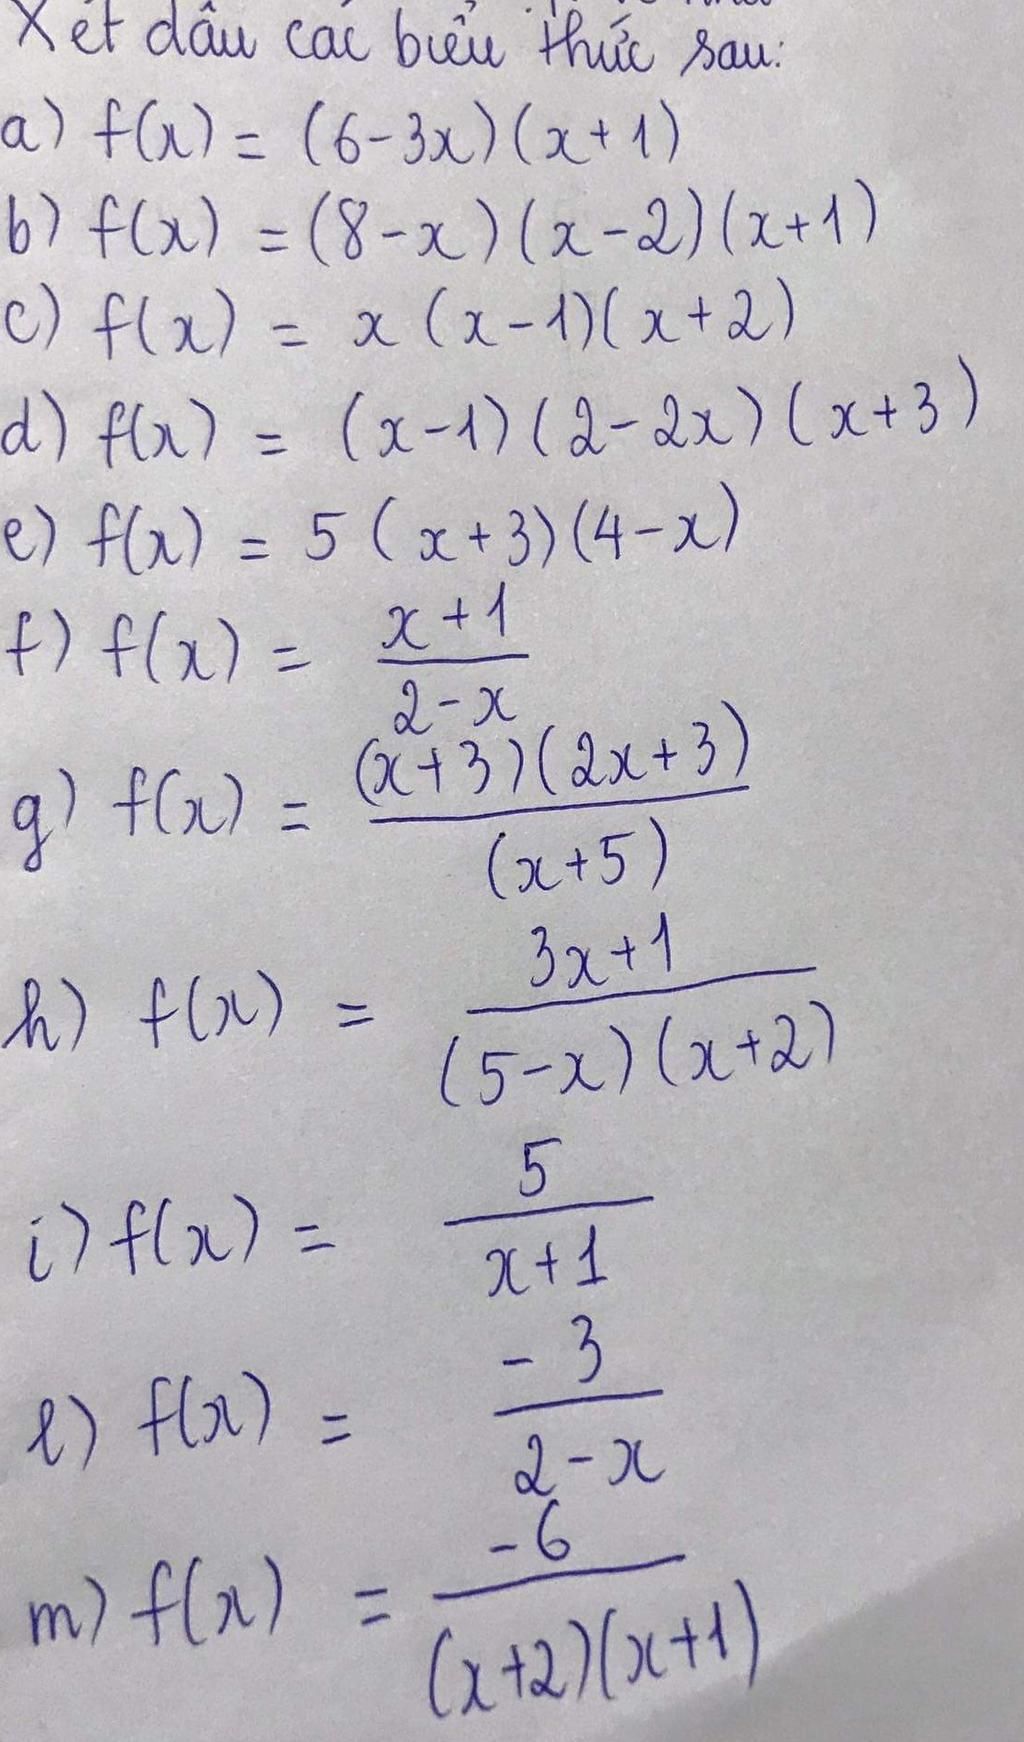 Xét dấu các biểu thức sau:
a) f(x) = (6-3x)(x+1)
b) f(x) = (8-x)(x-2)(x+1)
c) f(x) = x(x-1)(x+2)
d) f(x) = (x-1)(2-2x)(x+3)
e) f(x) = 5(x+3)(4-x)
f) f(x) = \frac{x+1}{2-x}
g) f(x) = \frac{(x+3)(2x+3)}{(x+5)}
h) f(x) = \frac{3x+1}{(5-x)(x+2)}
i) f(x) = \frac{5}{x+1}
l) f(x) = \frac{-3}{2-x}
m) f(x) = \frac{-6}{(x+2)(x+1)}